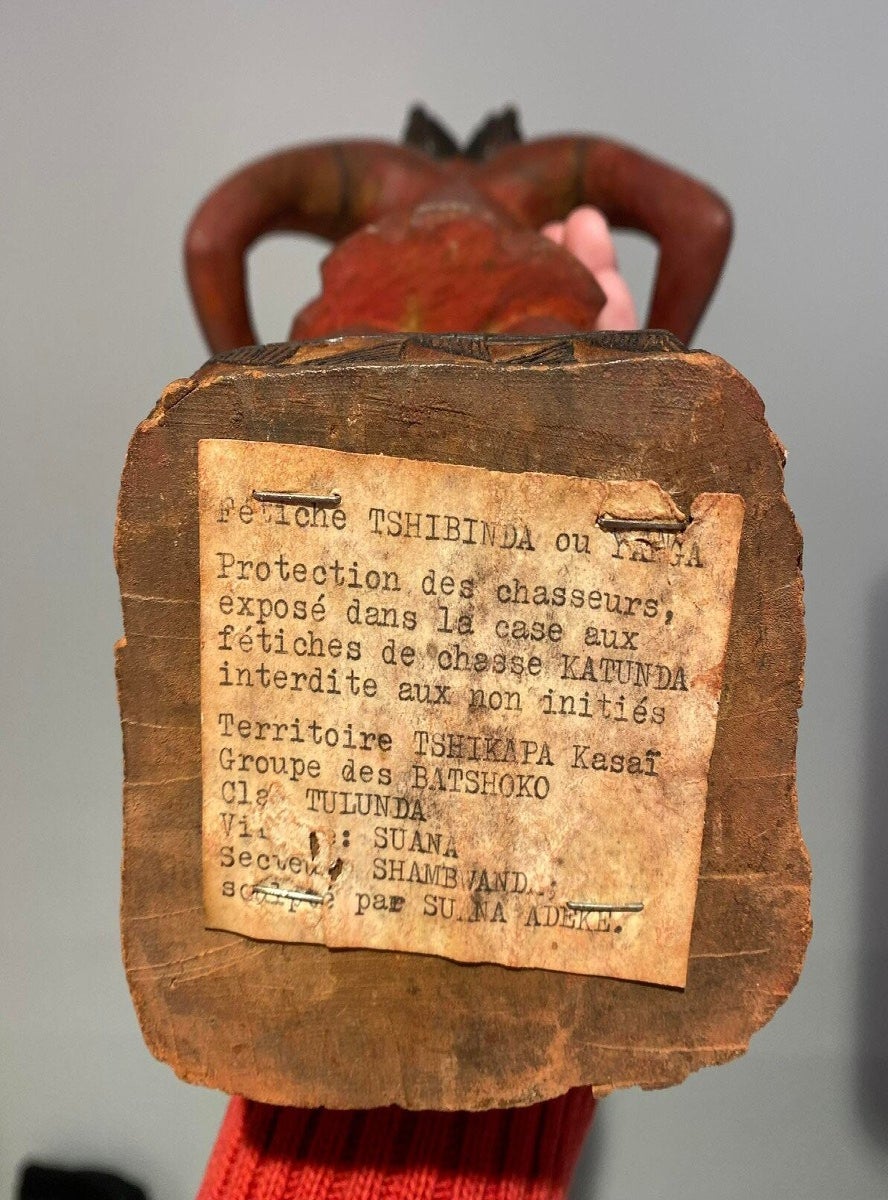 Fétiche TSHIBINDA ou
Protection des chasseurs,
exposé dans la case aux
fétiches de chasse KATUNDA
interdite aux non initiés
Territoire TSHIKAPA Kasaï
Groupe des BATSHOKO
TULUNDA
: SUANA
Secteur
sculpté par ADEKE.